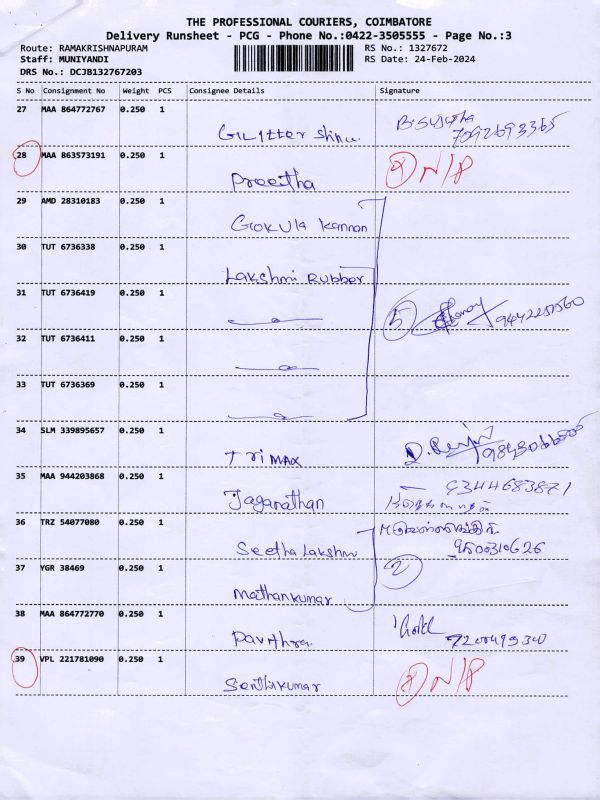 THE PROFESSIONAL COURIERS, COIMBATORE
Delivery Runsheet - PCG - Phone No.:0422-3505555 - Page No.:3
Route: RAMAKRISHNAPURAM RS No.: 1327672
Staff: MUNIYANDI RS Date: 24-Feb-2024
DRS No.: DCJB132767203
S No Consignment No Weight PCS Consignee Details Signature
27 MAA 864772767 0.250 1 Glitter 7092693365
28 MAA 863573191 0.250 1 Preetha N/P
29 AMD 28310183 0.250 1 Gokula Kannan
30 TUT 6736338 0.250 1 Lakshmi Rubber
31 TUT 6736419 0.250 1 5
32 TUT 6736411 0.250 1
33 TUT 6736369 0.250 1
34 SLM 339895657 0.250 1 Trimax
35 MAA 944203868 0.250 1 Jaganathan 9344683871
36 TRZ 54077080 0.250 1 Seetha Lakshmi 9500310626
37 YGR 38469 0.250 1 Mathankumar 2
38 MAA 864772770 0.250 1 Pavithra
39 VPL 221781090 0.250 1 Senthilkumar N/P